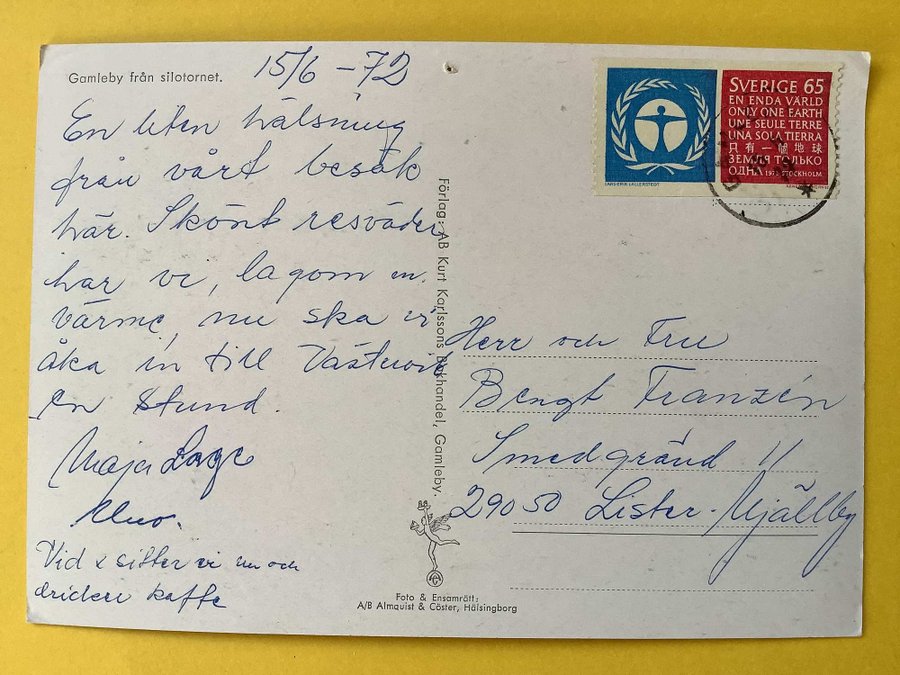 Gamleby från silotornet.
15/6 - 72
En liten hälsning
från vårt besök
här. Skönt resväder
har vi, lagom en.
värme, nu ska vi
åka in till Västervik
en stund.
Maja Lage
Vid x sitter vi nu och
dricker kaffe
Förlag: AB Kurt Karlssons Bokhandel, Gamleby.
Foto & Ensamrätt:
A/B Almquist & Cöster, Hälsingborg
SVERIGE 65
EN ENDA VÄRLD
ONLY ONE EARTH
UNE SEULE TERRE
UNA SOLA TIERRA
只有一個地球
ЗЕМЛЯ ТОЛЬКО
ОДНА 1972 STOCKHOLM
LARS-ERIK LALLERSTEDT
Herr och Fru
Bengt Franzén
Smedgränd 11
29050 Lister-Mjällby